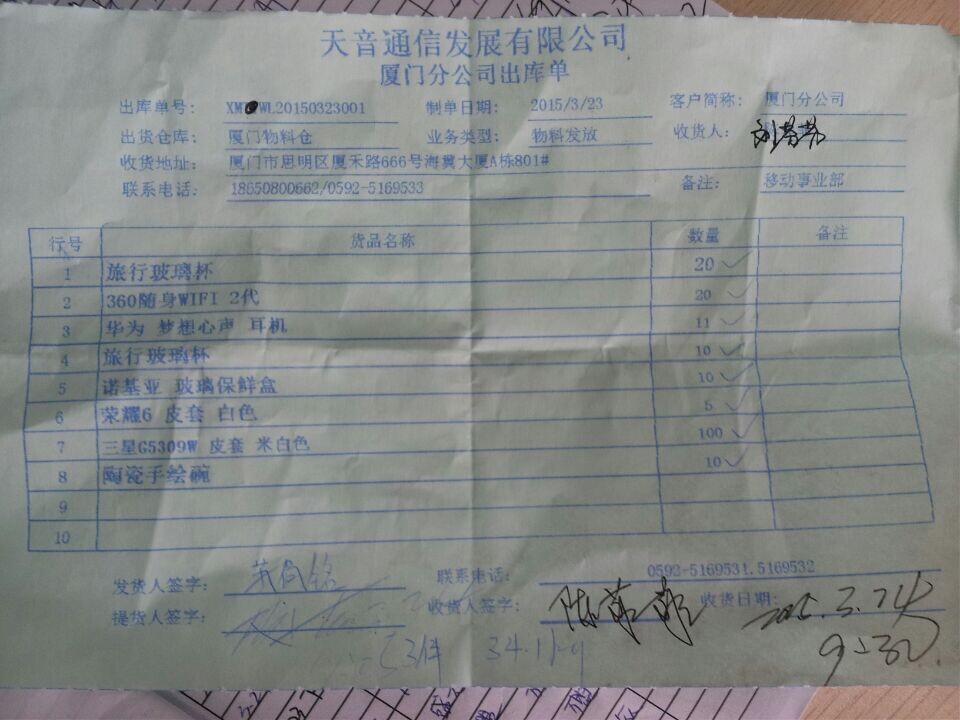 天音通信发展有限公司
厦门分公司出库单
出库单号: XM WL20150323001 制单日期: 2015/3/23 客户简称: 厦门分公司
出货仓库: 厦门物料仓 业务类型: 物料发放 收货人:
收货地址: 厦门市思明区厦禾路666号海翼大厦A栋801#
联系电话: 18650800662/0592-5169533 备注: 移动事业部
行号 货品名称 数量 备注
1 旅行玻璃杯 20
2 360随身WIFI 2代 20
3 华为 梦想心声 耳机 11
4 旅行玻璃杯 10
5 诺基亚 玻璃保鲜盒 10
6 荣耀6 皮套 白色 5
7 三星G5309W 皮套 米白色 100
8 陶瓷手绘碗 10
9
10
发货人签字: 联系电话: 0592-5169531.5169532
提货人签字: 收货人签字: 收货日期: 2015.3.24
3件 34.1kg 9:30.